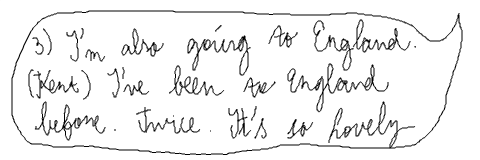 3) I'm also going to England.
(Kent) I've been to England
before. Twice. It's so lovely